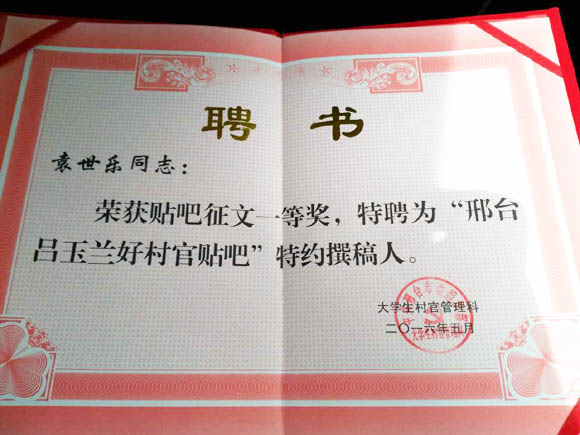 聘 书
袁世乐同志：
荣获贴吧征文一等奖，特聘为“邢台
吕玉兰好村官贴吧”特约撰稿人。
大学生村官管理科
二〇一六年五月